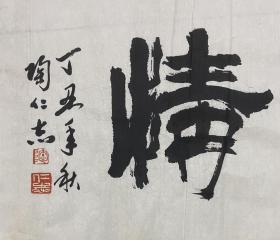 情
丁丑年秋
陶仁志